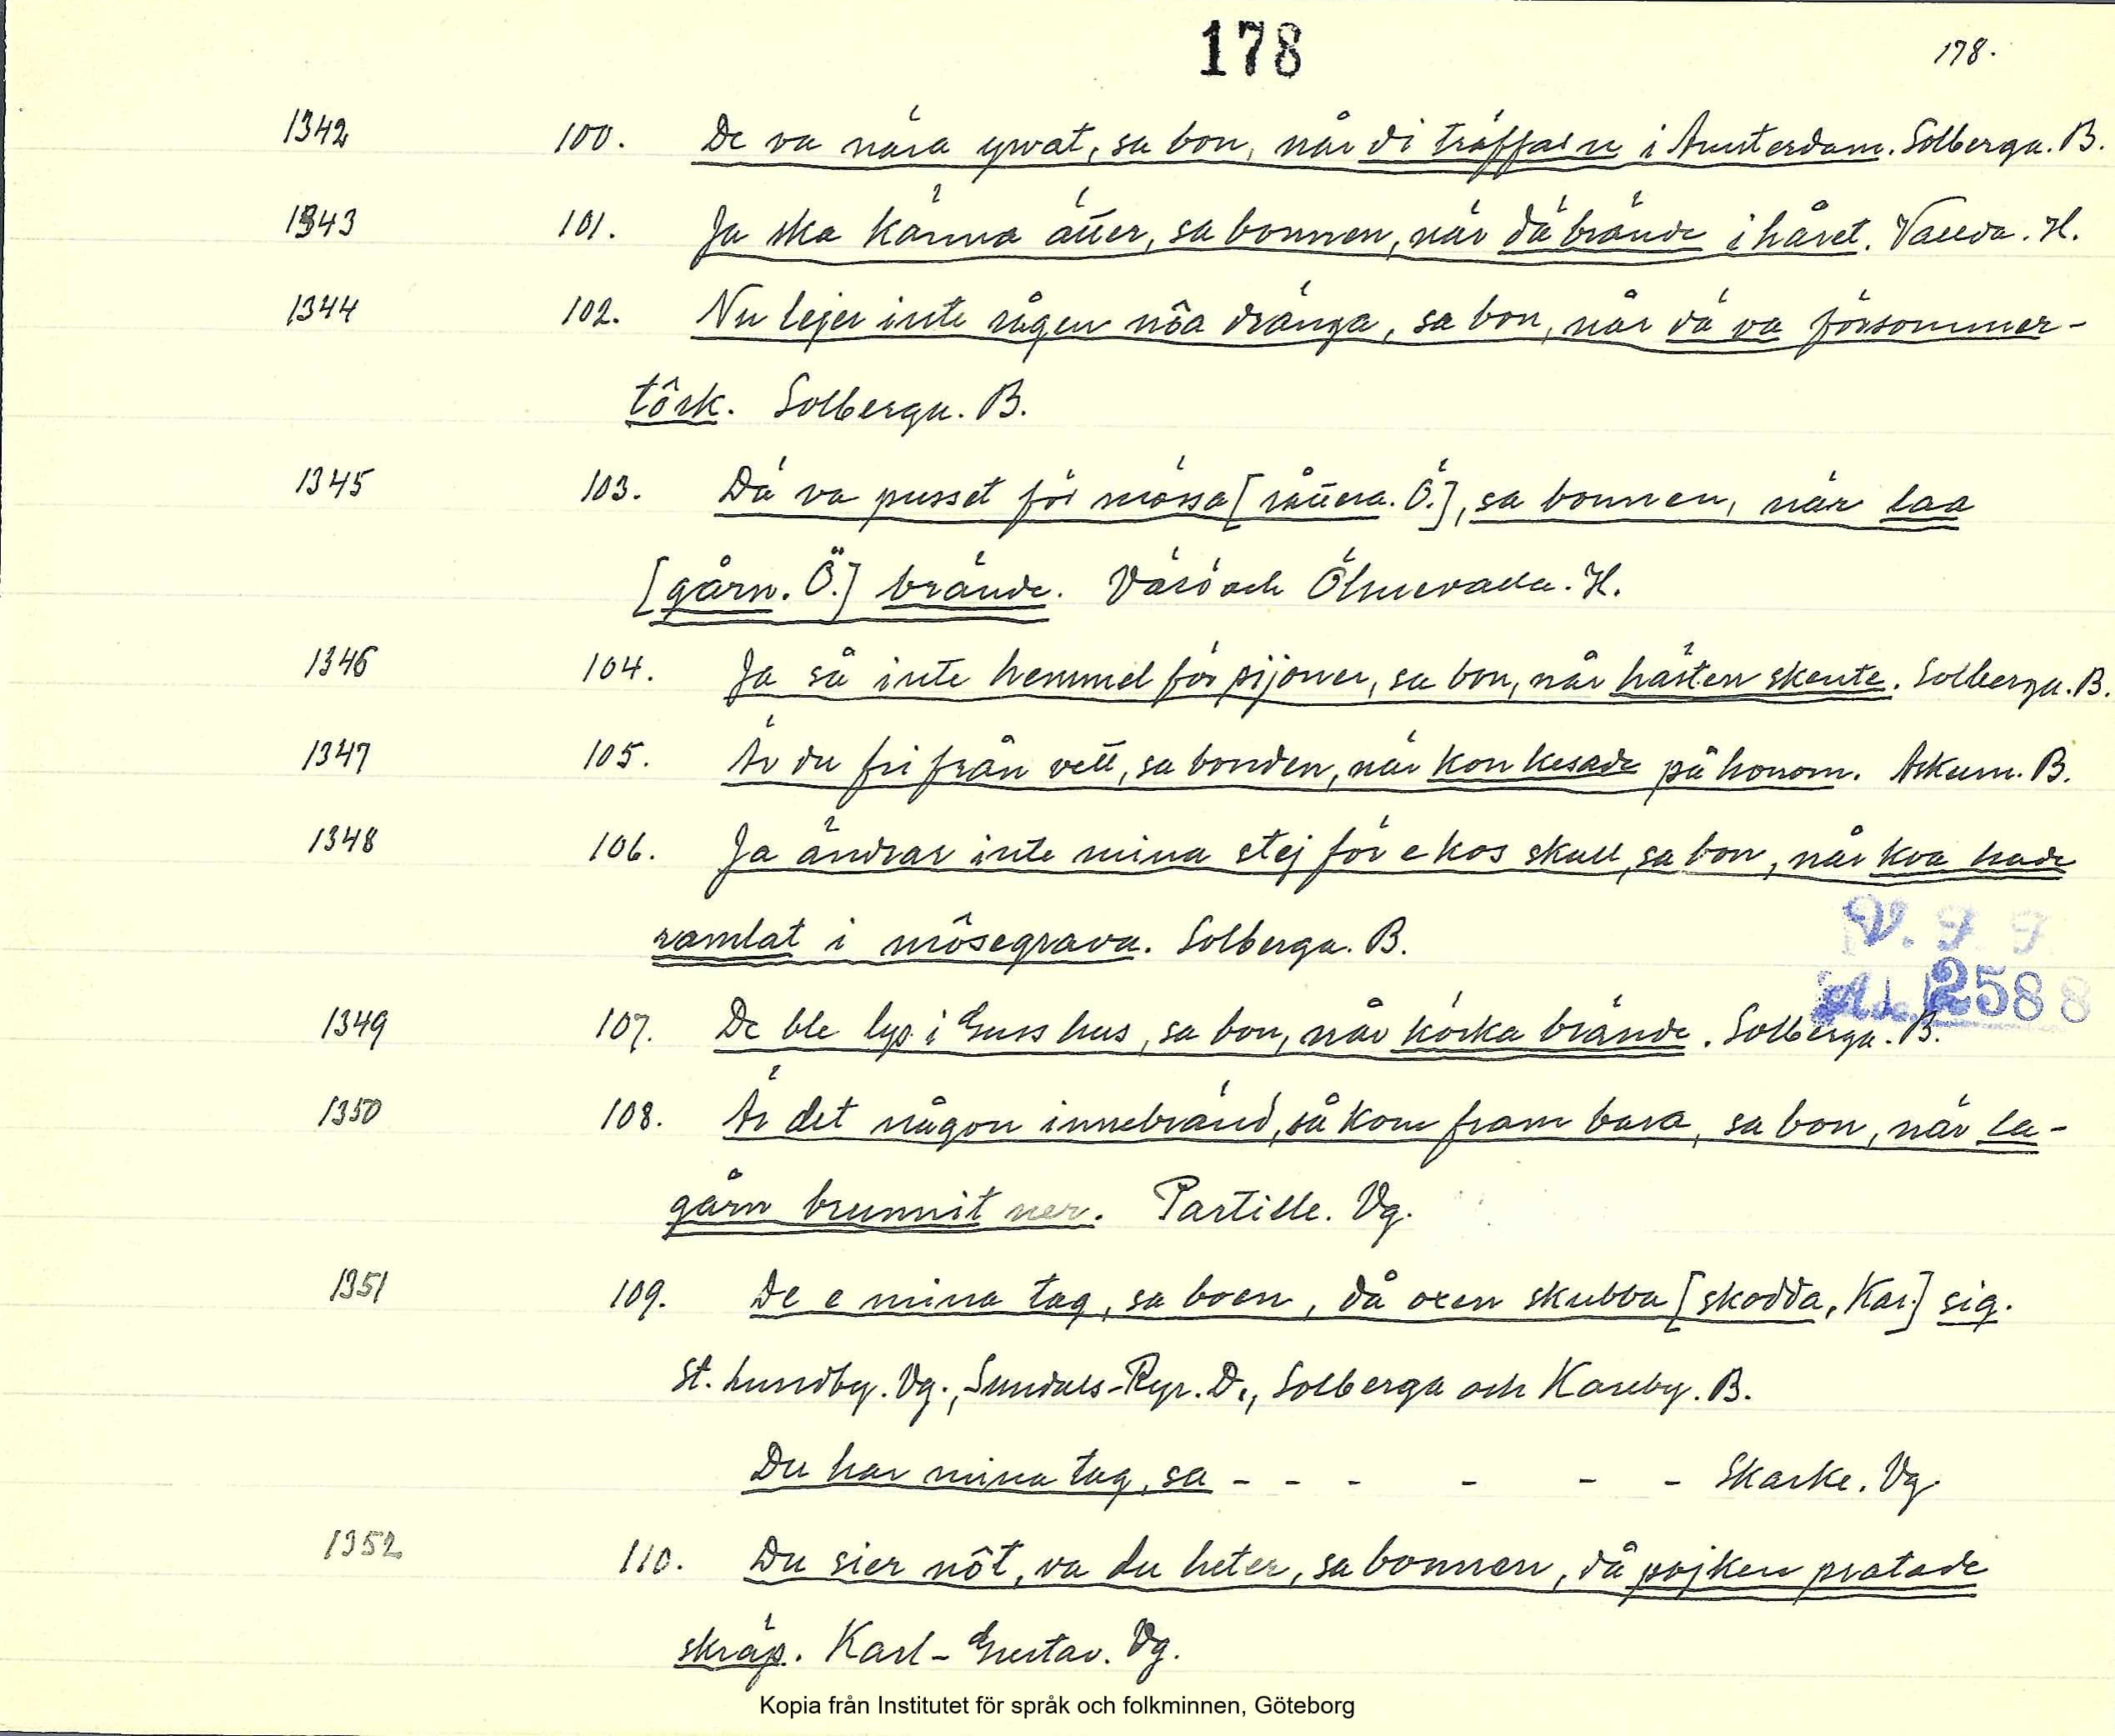 178
178.
1342 100. De va nära ywat, sa bon, når di träffas n i Amsterdam. Solberga. B.
1343 101. Ja ska känna ätter, sa bonnen, när dä brände i håret. Vallda. H.
1344 102. Nu lejer inte rågen nôa dränga, sa bon, når dä va försommer-
tôrk. Solberga. B.
1345 103. Dä va pusset för mössa [råttera. Ö.], sa bonnen, när laa
[gårn. Ö.] brände. Värö och Ölmevalla. H.
1346 104. Ja så inte hemmel för pijoner, sa bon, når hästen skente. Solberga. B.
1347 105. Är du fri från vett, sa bonden, när kon kesade på honom. Askum. B.
1348 106. Ja ändrar inte mina stej för e kos skull, sa bon, når koa hade
ramlat i môsegrava. Solberga. B.
V. F F
2588
1349 107. De ble lys i Guss hus, sa bon, når körka brände. Solberga. B.
1350 108. Är det någon innebränd, så kom fram bara, sa bon, när la-
gårn brunnit ner. Partille. Vg.
1351 109. De e mina tag, sa boen, då oxen skubba [skodda, Kar.] sig.
St. Lundby. Vg., Sundals-Ryr. D., Solberga och Kareby. B.
Du har mina tag, sa - - - - - - Skarke. Vg.
1352 110. Du sier nôt, va du heter, sa bonnen, då pojken pratade
skräp. Karl-Gustav. Vg.
Kopia från Institutet för språk och folkminnen, Göteborg